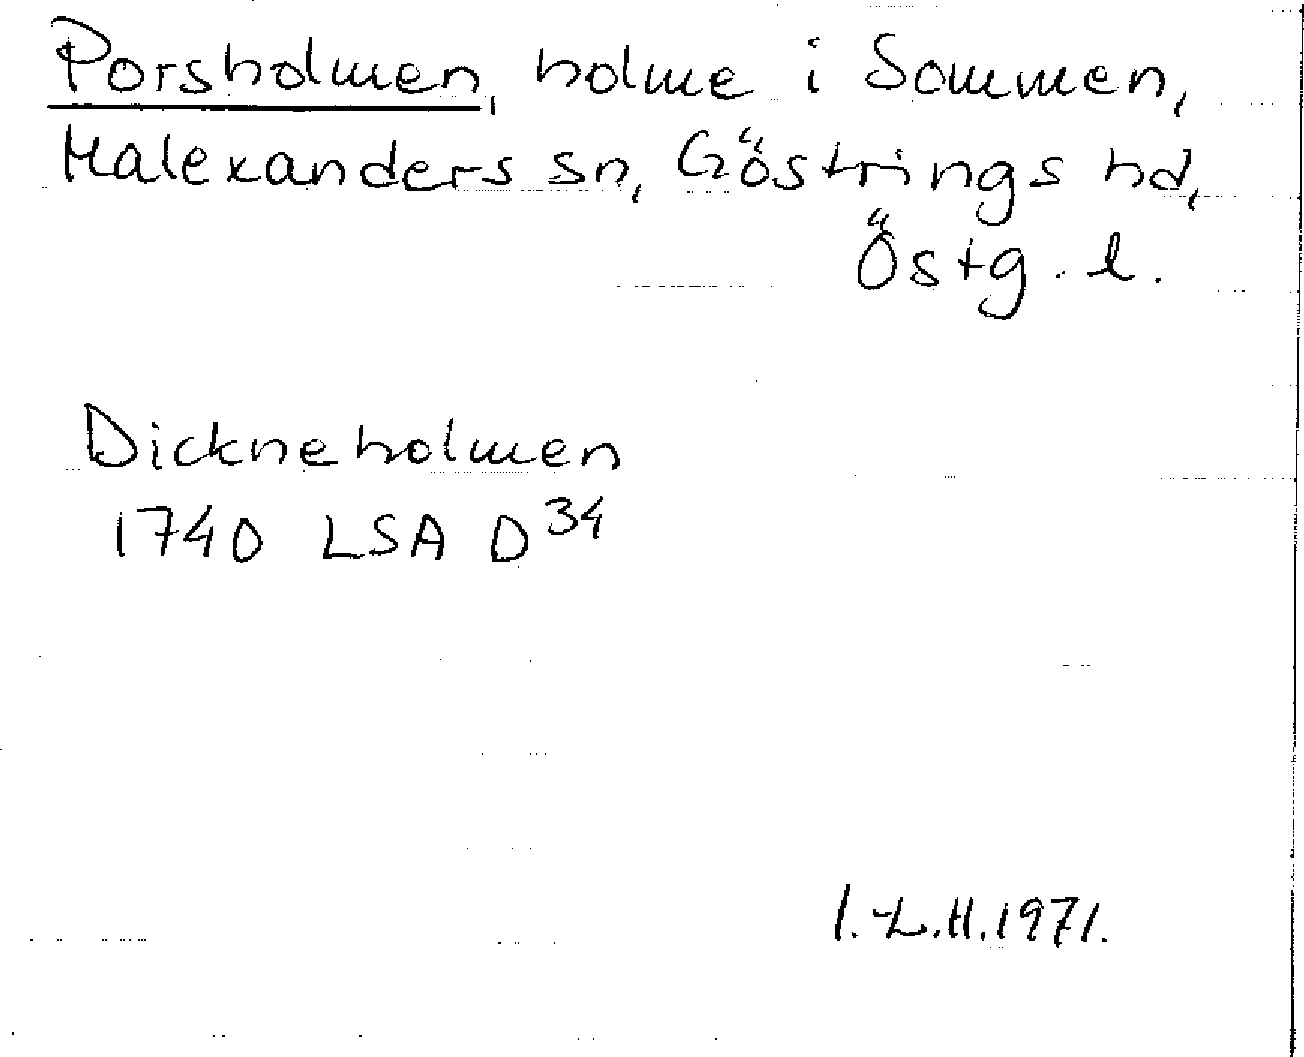 Porsholmen, holme i Sommen,
Malexanders sn, Göstrings hd,
Östg. l.
Dickneholmen
1740 LSA D34
I.L.H.1971.